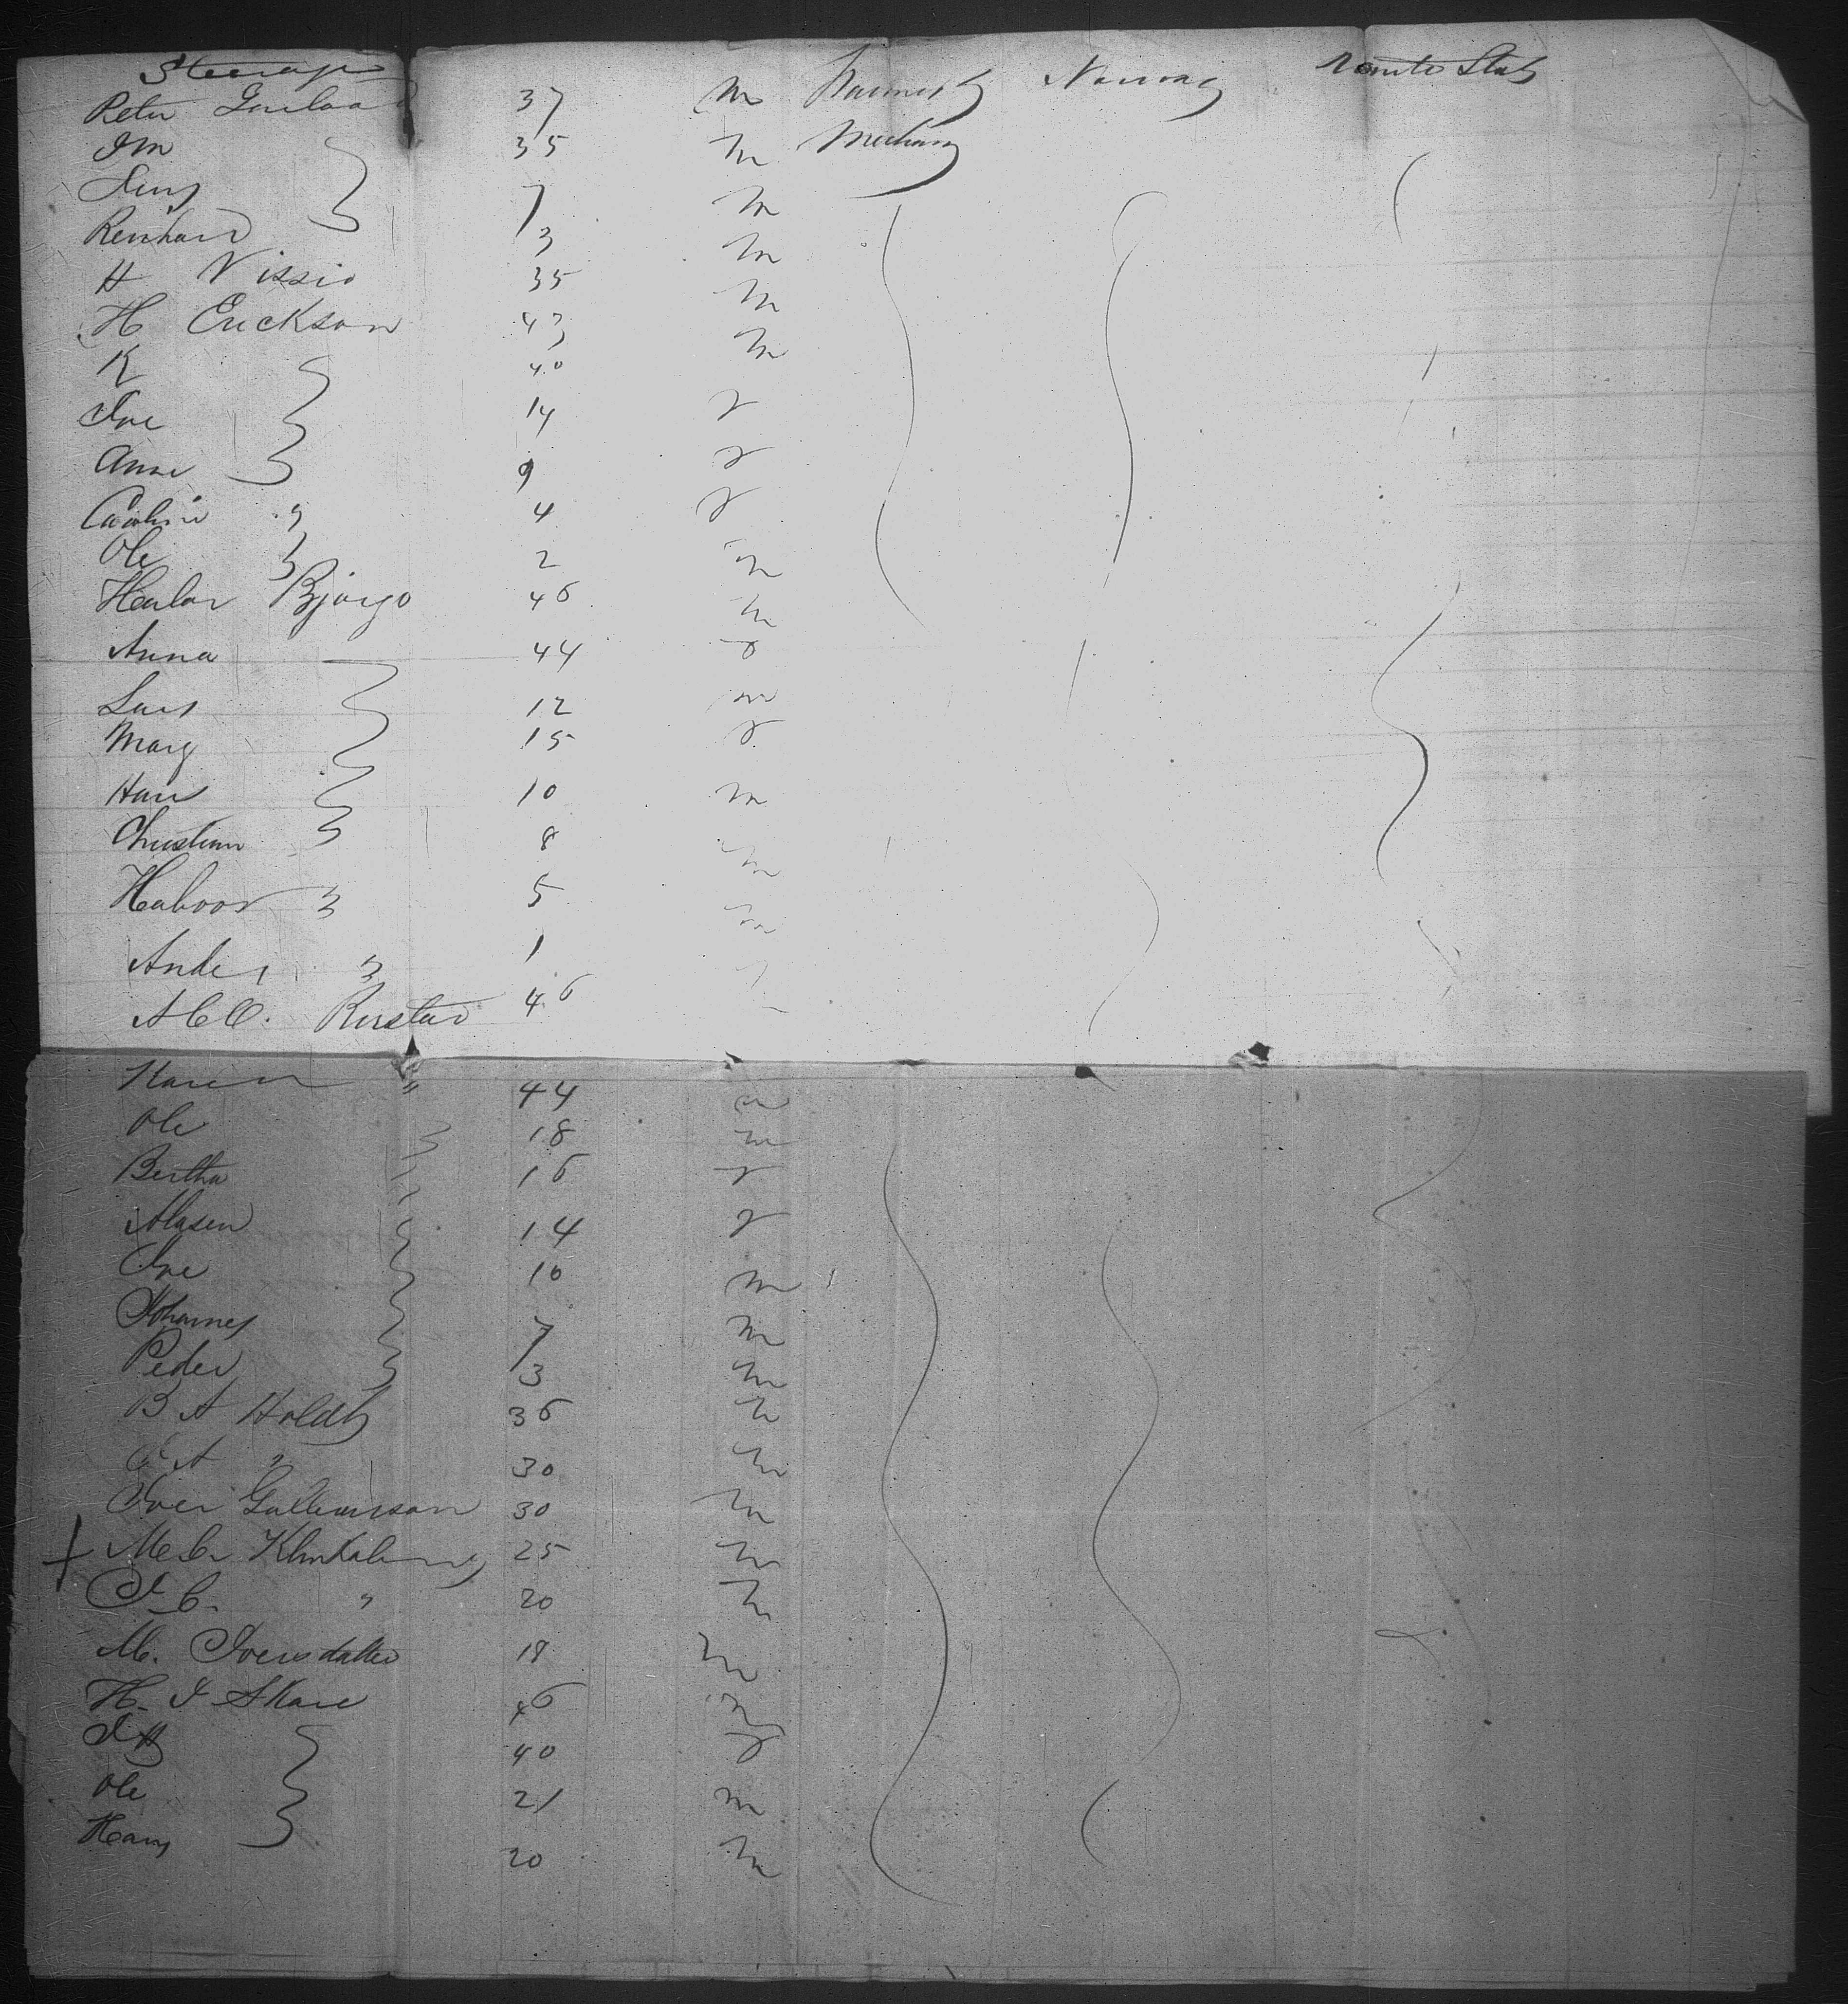 Steerage
Peter 37 m Farmer Norway United States
I M 35 m Mechanic
Jens 7 m
Reinhard 3 m
H Nissio 35 m
H. Erickson 43 m
K 40
Ive 14 f
Anne 9 f
Caroline " 4 f
Ole " 2 m
Halvor Bjorgo 46 m
Anna 44 f
Lars 12 m
Mary 15 f
Hans 10 m
Christian 8 m
Halvor " 5 m
Anders " 1
A C O. Rustad 46
Karen " 44
Ole " 18 m
Bertha " 16 f
14 f
Ive 10 m
Johannes 7 m
Peder 3 m
B A Holdt 36 m
A " 30 m
Iver 30 m
M. C. 25 m
I. C. " 20 m
M. Iversdatter 18 m
H. I Skare 46 m
I H 40 f
Ole 21 m
Hans 20 m